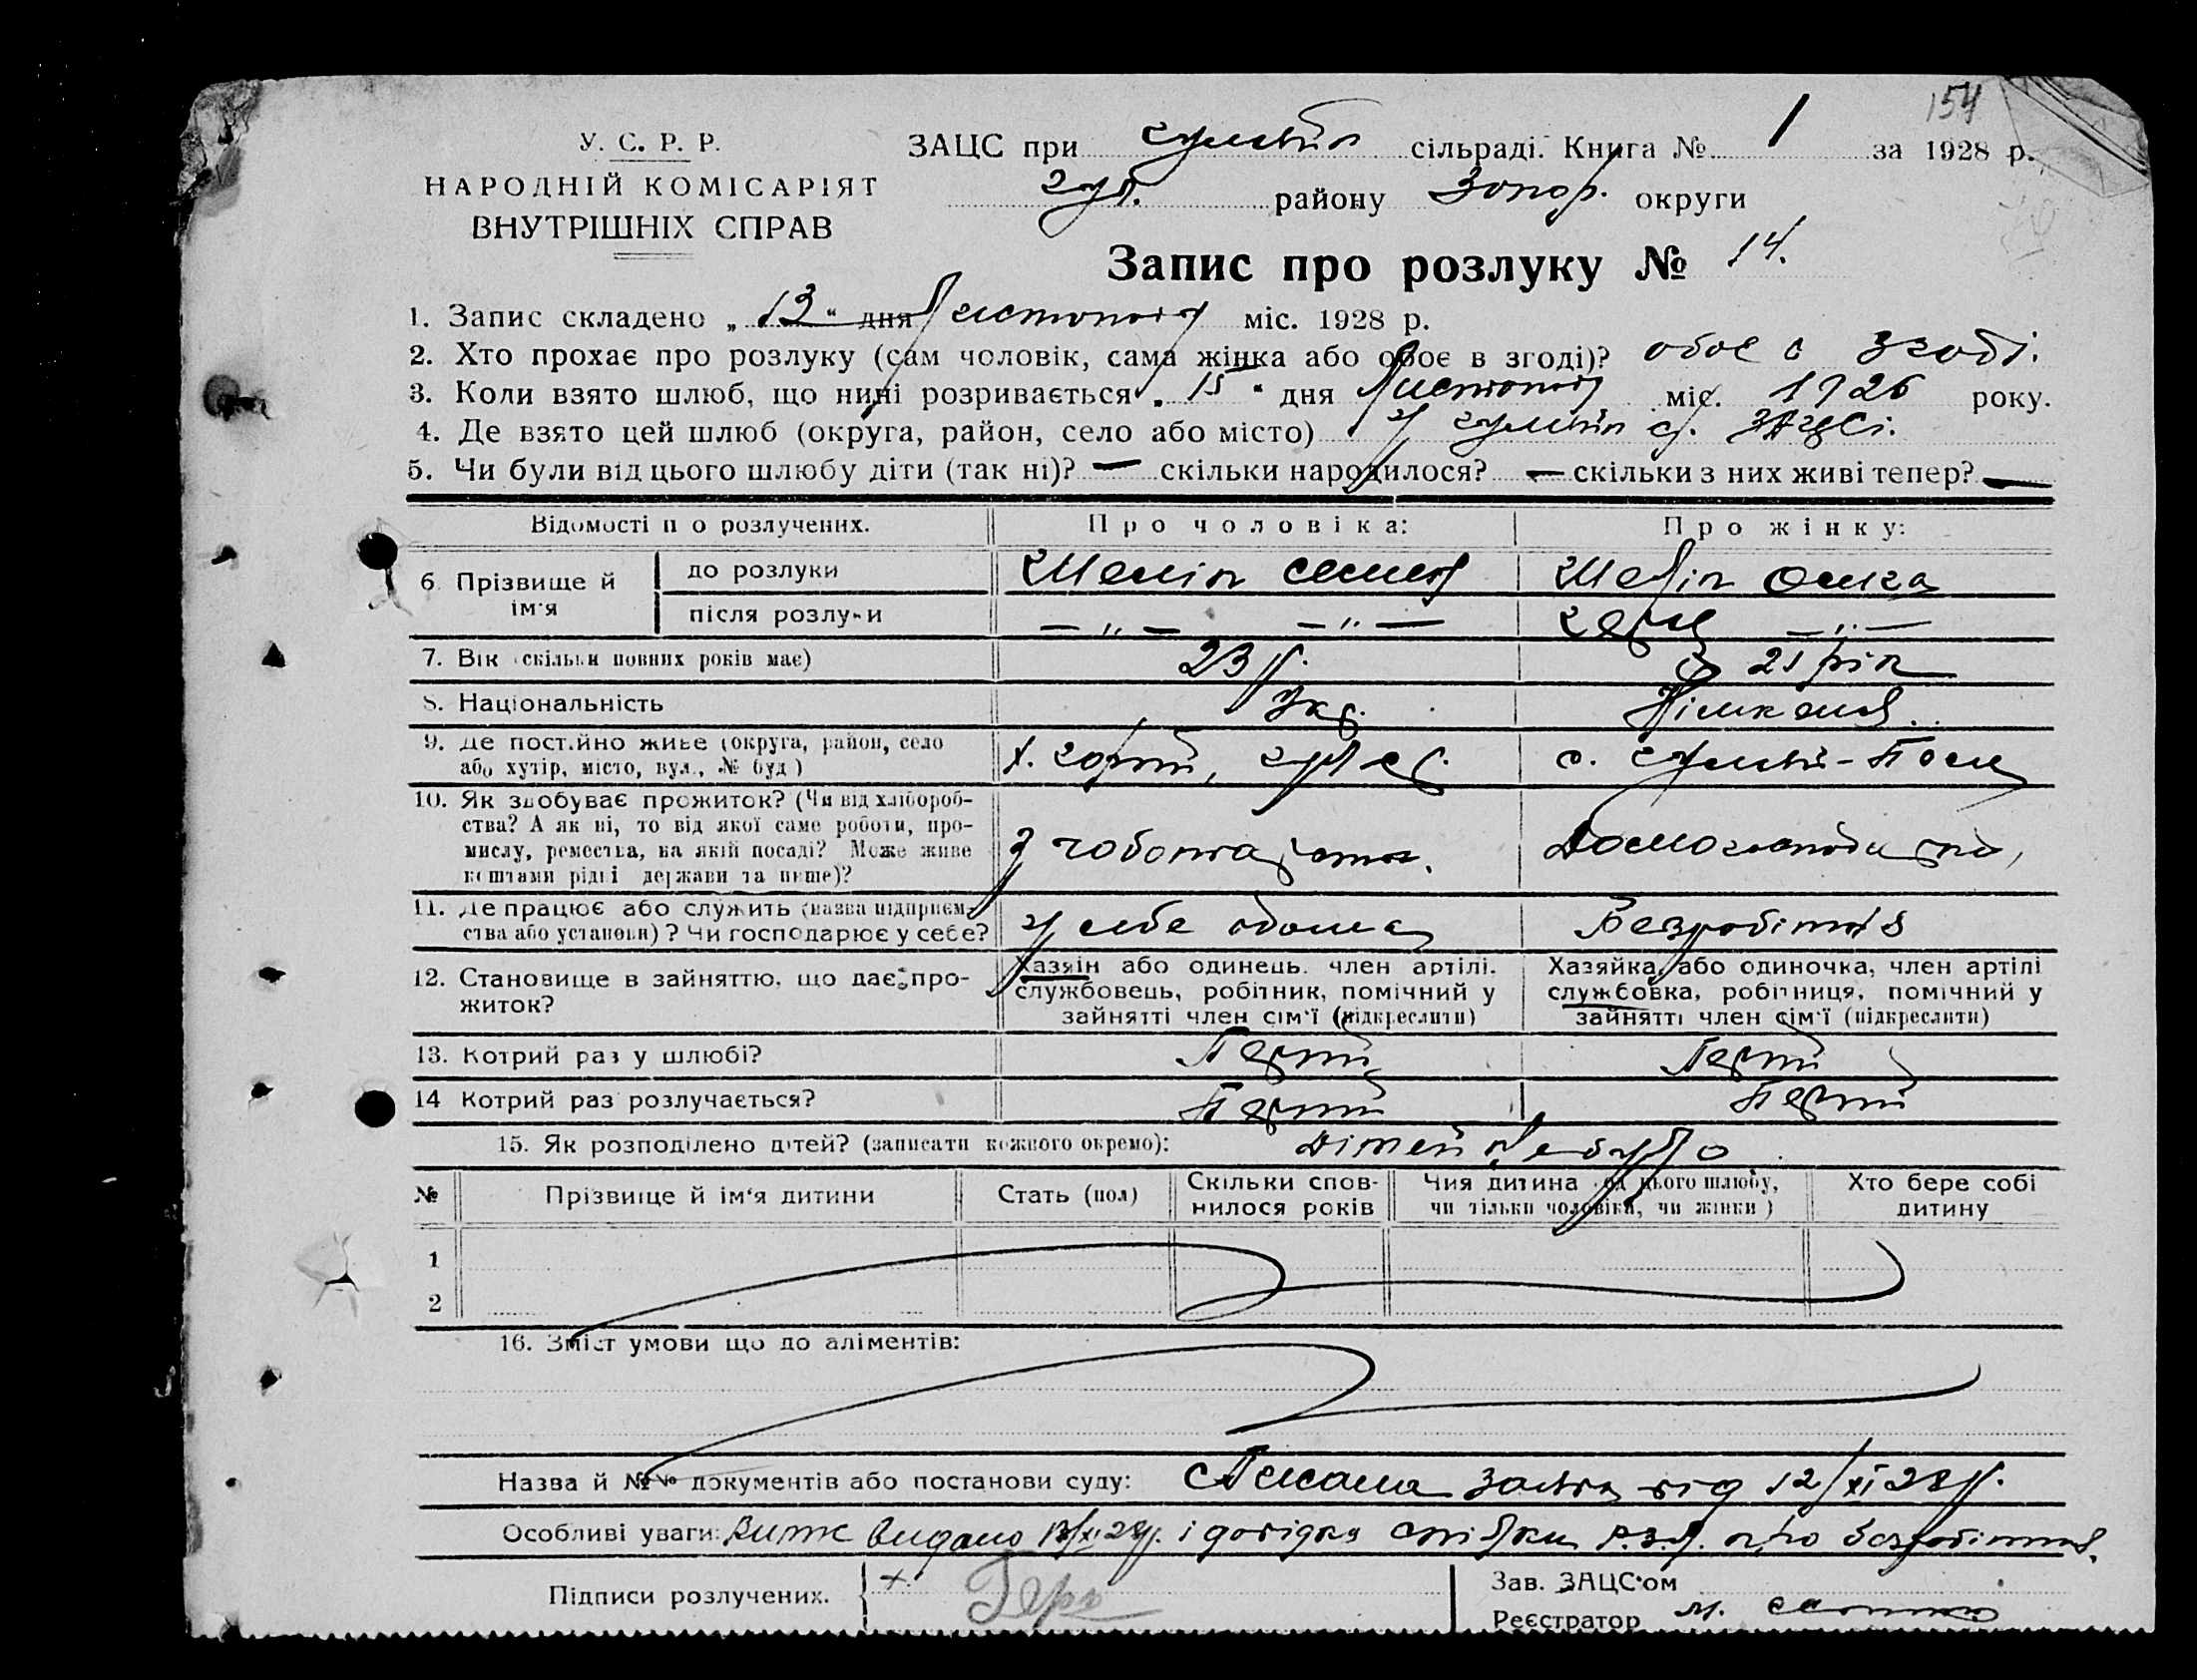 154
У. С. Р. Р.
НАРОДНІЙ КОМІСАРІЯТ
ВНУТРІШНІХ СПРАВ
ЗАЦС при сільраді. Книга № 1 за 1928 р.
гул. району Запор. округи
Запис про розлуку № 14.
1. Запис складено „ 13 “ дня листопада міс. 1928 р.
2. Хто прохає про розлуку (сам чоловік, сама жінка або обоє в згоді)? обоє в згоді.
3. Коли взято шлюб, що нині розривається „ 15 “ дня листопада міс. 1926 року.
4. Де взято цей шлюб (округа, район, село або місто) У
5. Чи були від цього шлюбу діти (так ні)? — скільки народилося? — скільки з них живі тепер? —
Відомості п о розлучених. Про чоловіка: Про жінку:
6. Прізвище й ім'я
до розлуки Семен
після розлуки — „ — — „ — — „ —
7. Вік (скільки повних років має) 23 р. 21 рік
8. Національність Укр. Німкеня.
9. Де постійно живе (округа, район, село або хутір, місто, вул., № буд.) х. с.
10. Як здобуває прожиток? (Чи від хлібороб-
ства? А як ні, то від якої саме роботи, про-
мислу, ремества, на якій посаді? Може живе
коштами рідні держави та инше)?
11. Де працює або служить (назва підприєм-
ства або установи)? Чи господарює у себе? у себе вдома Безробітня
12. Становище в зайняттю, що дає про-
житок?
Хазяін або одинець, член артілі,
службовець, робітник, помічний у
зайнятті член сім'ї (підкреслити)
Хазяйка, або одиночка, член артілі
службовка, робітниця, помічний у
зайнятті член сім'ї (підкреслити)
13. Котрий раз у шлюбі? Перший Перший
14 Котрий раз розлучається? Перший Перший
15. Як розподілено дітей? (записати кожного окремо): Дітей не було
№ Прізвище й ім'я дитини Стать (пол) Скільки спов-
нилося років Чия дитина (од цього шлюбу,
чи тільки чоловіка, чи жінки) Хто бере собі
дитину
1
2
16. Зміст умови що до аліментів:
Назва й №№ документів або постанови суду: заява від 12/XI 28 р.
Особливі уваги: Витяг видано 13/XI 28 р. і довідка спілки про безробіття.
Підписи розлучених.
Зав. ЗАЦС'ом
Реєстратор